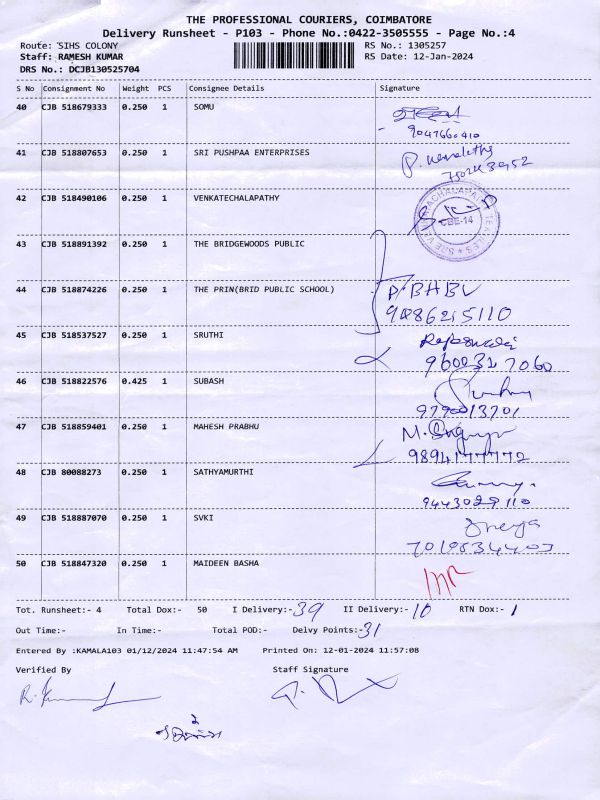 THE PROFESSIONAL COURIERS, COIMBATORE
Delivery Runsheet - P103 - Phone No.:0422-3505555 - Page No.:4
Route: SIHS COLONY RS No.: 1305257
Staff: RAMESH KUMAR RS Date: 12-Jan-2024
DRS No.: DCJB130525704
S No Consignment No Weight PCS Consignee Details Signature
40 CJB 518679333 0.250 1 SOMU
9047660410
41 CJB 518807653 0.250 1 SRI PUSHPAA ENTERPRISES
42 CJB 518490106 0.250 1 VENKATECHALAPATHY
CBE-14
43 CJB 518891392 0.250 1 THE BRIDGEWOODS PUBLIC
44 CJB 518874226 0.250 1 THE PRIN(BRID PUBLIC SCHOOL)
45 CJB 518537527 0.250 1 SRUTHI
46 CJB 518822576 0.425 1 SUBASH
9790013701
47 CJB 518859401 0.250 1 MAHESH PRABHU
9894177772
48 CJB 80088273 0.250 1 SATHYAMURTHI
9443029110
49 CJB 518887070 0.250 1 SVKI
50 CJB 518847320 0.250 1 MAIDEEN BASHA
Tot. Runsheet:- 4 Total Dox:- 50 I Delivery:-39 II Delivery:-10 RTN Dox:-1
Out Time:- In Time:- Total POD:- Delvy Points:-31
Entered By :KAMALA103 01/12/2024 11:47:54 AM Printed On: 12-01-2024 11:57:08
Verified By Staff Signature